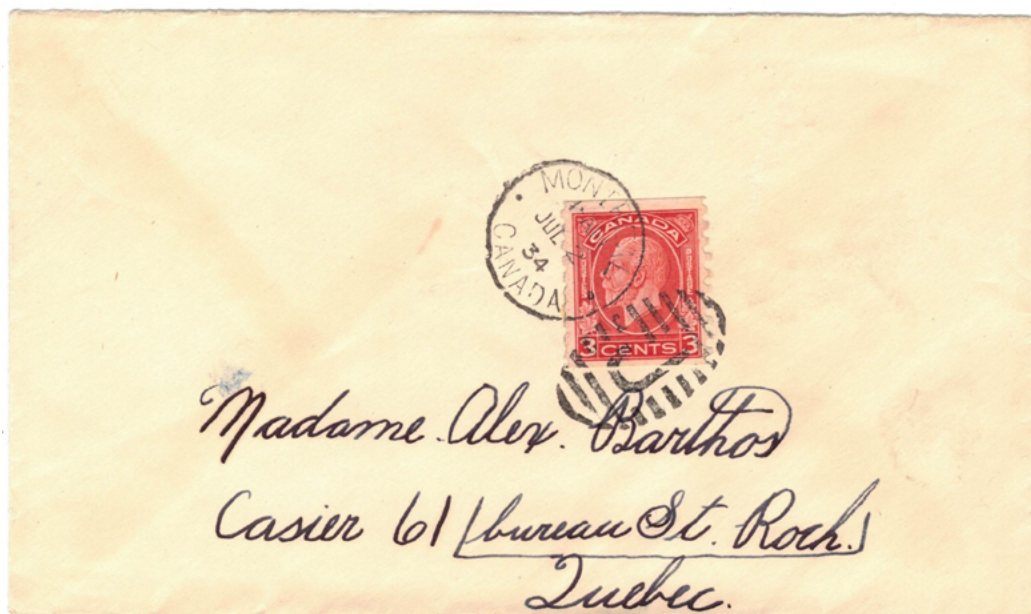 MONTREAL
JUL 2
34
CANADA
CANADA
3 CENTS 3
Madame. Alex. Barthos
Casier 61 (bureau St. Roch.)
Quebec.